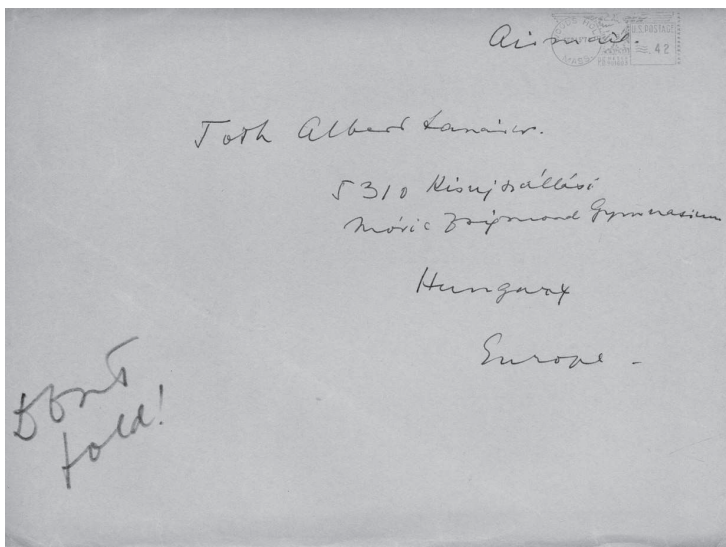 Airmail.
U.S. POSTAGE
.42
MASS
PB
Toth Albert tanár
5310 Kisujszállási
Móric Zsigmond Gymnasium
Hungary
Europe -
Dont
fold!